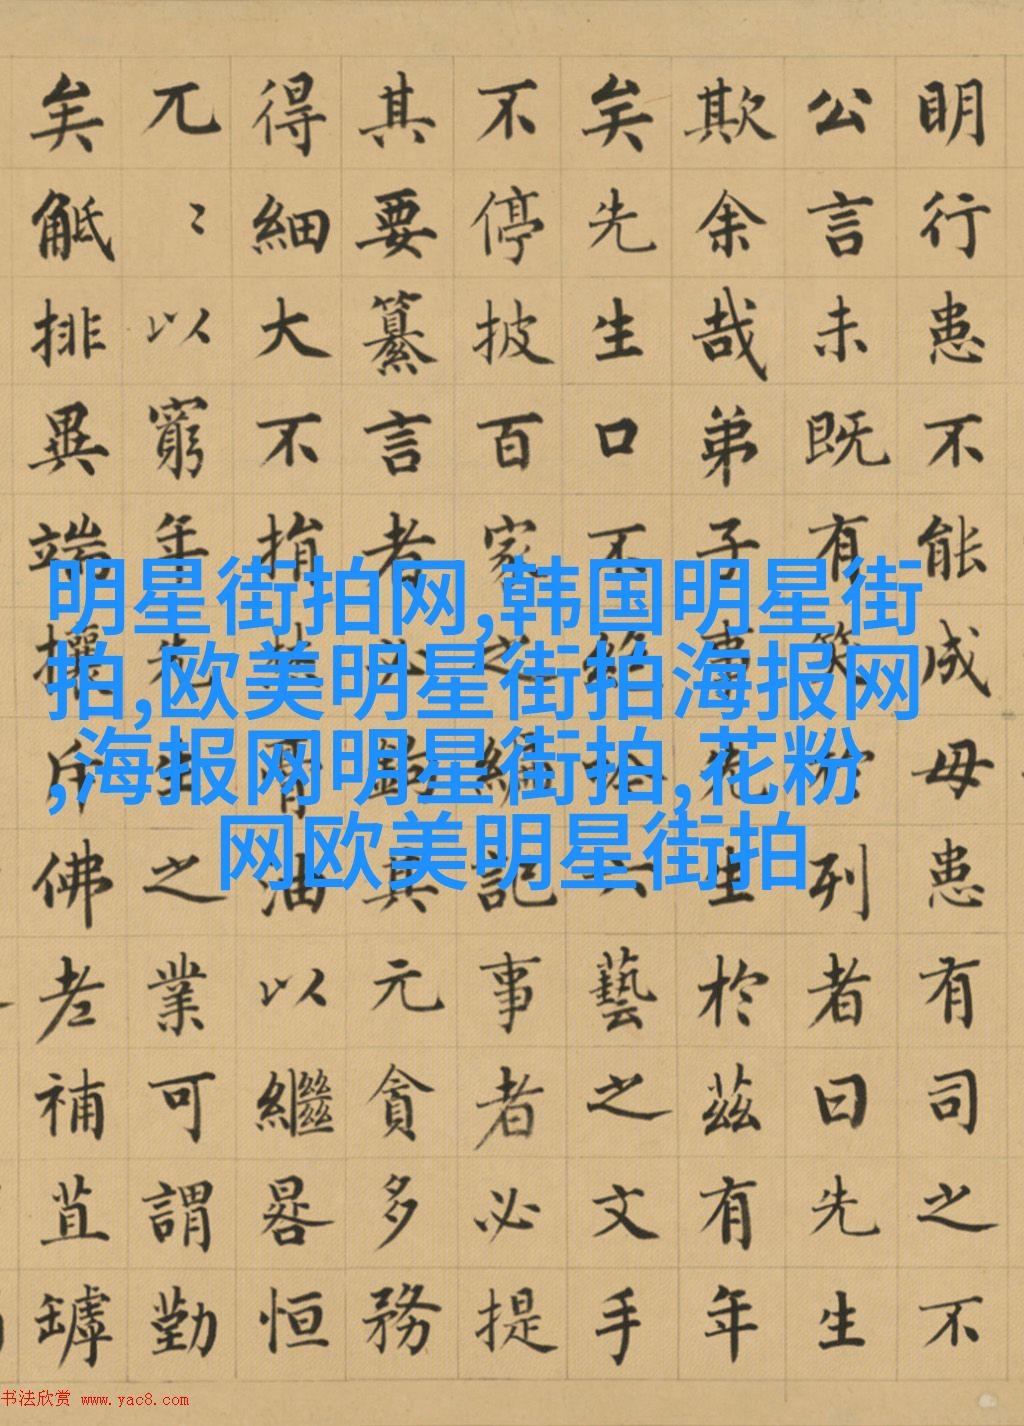 明行患不能成毋患有司之不
公言未既有笑於列者曰先生
欺余哉弟子事先生於茲有年
矣先生口不絕吟六藝之文手
不停披百家之編記事者必提
其要纂言者必鉤其元貪多務
得細大不捐焚膏油以繼晷恒
兀〻以窮年先生之業可謂勤
矣觝排異端攘斥佛老補苴罅
明星街拍网,韩国明星街
拍,欧美明星街拍海报网
,海报网明星街拍,花粉
网欧美明星街拍
书法欣赏 www.yac8.com